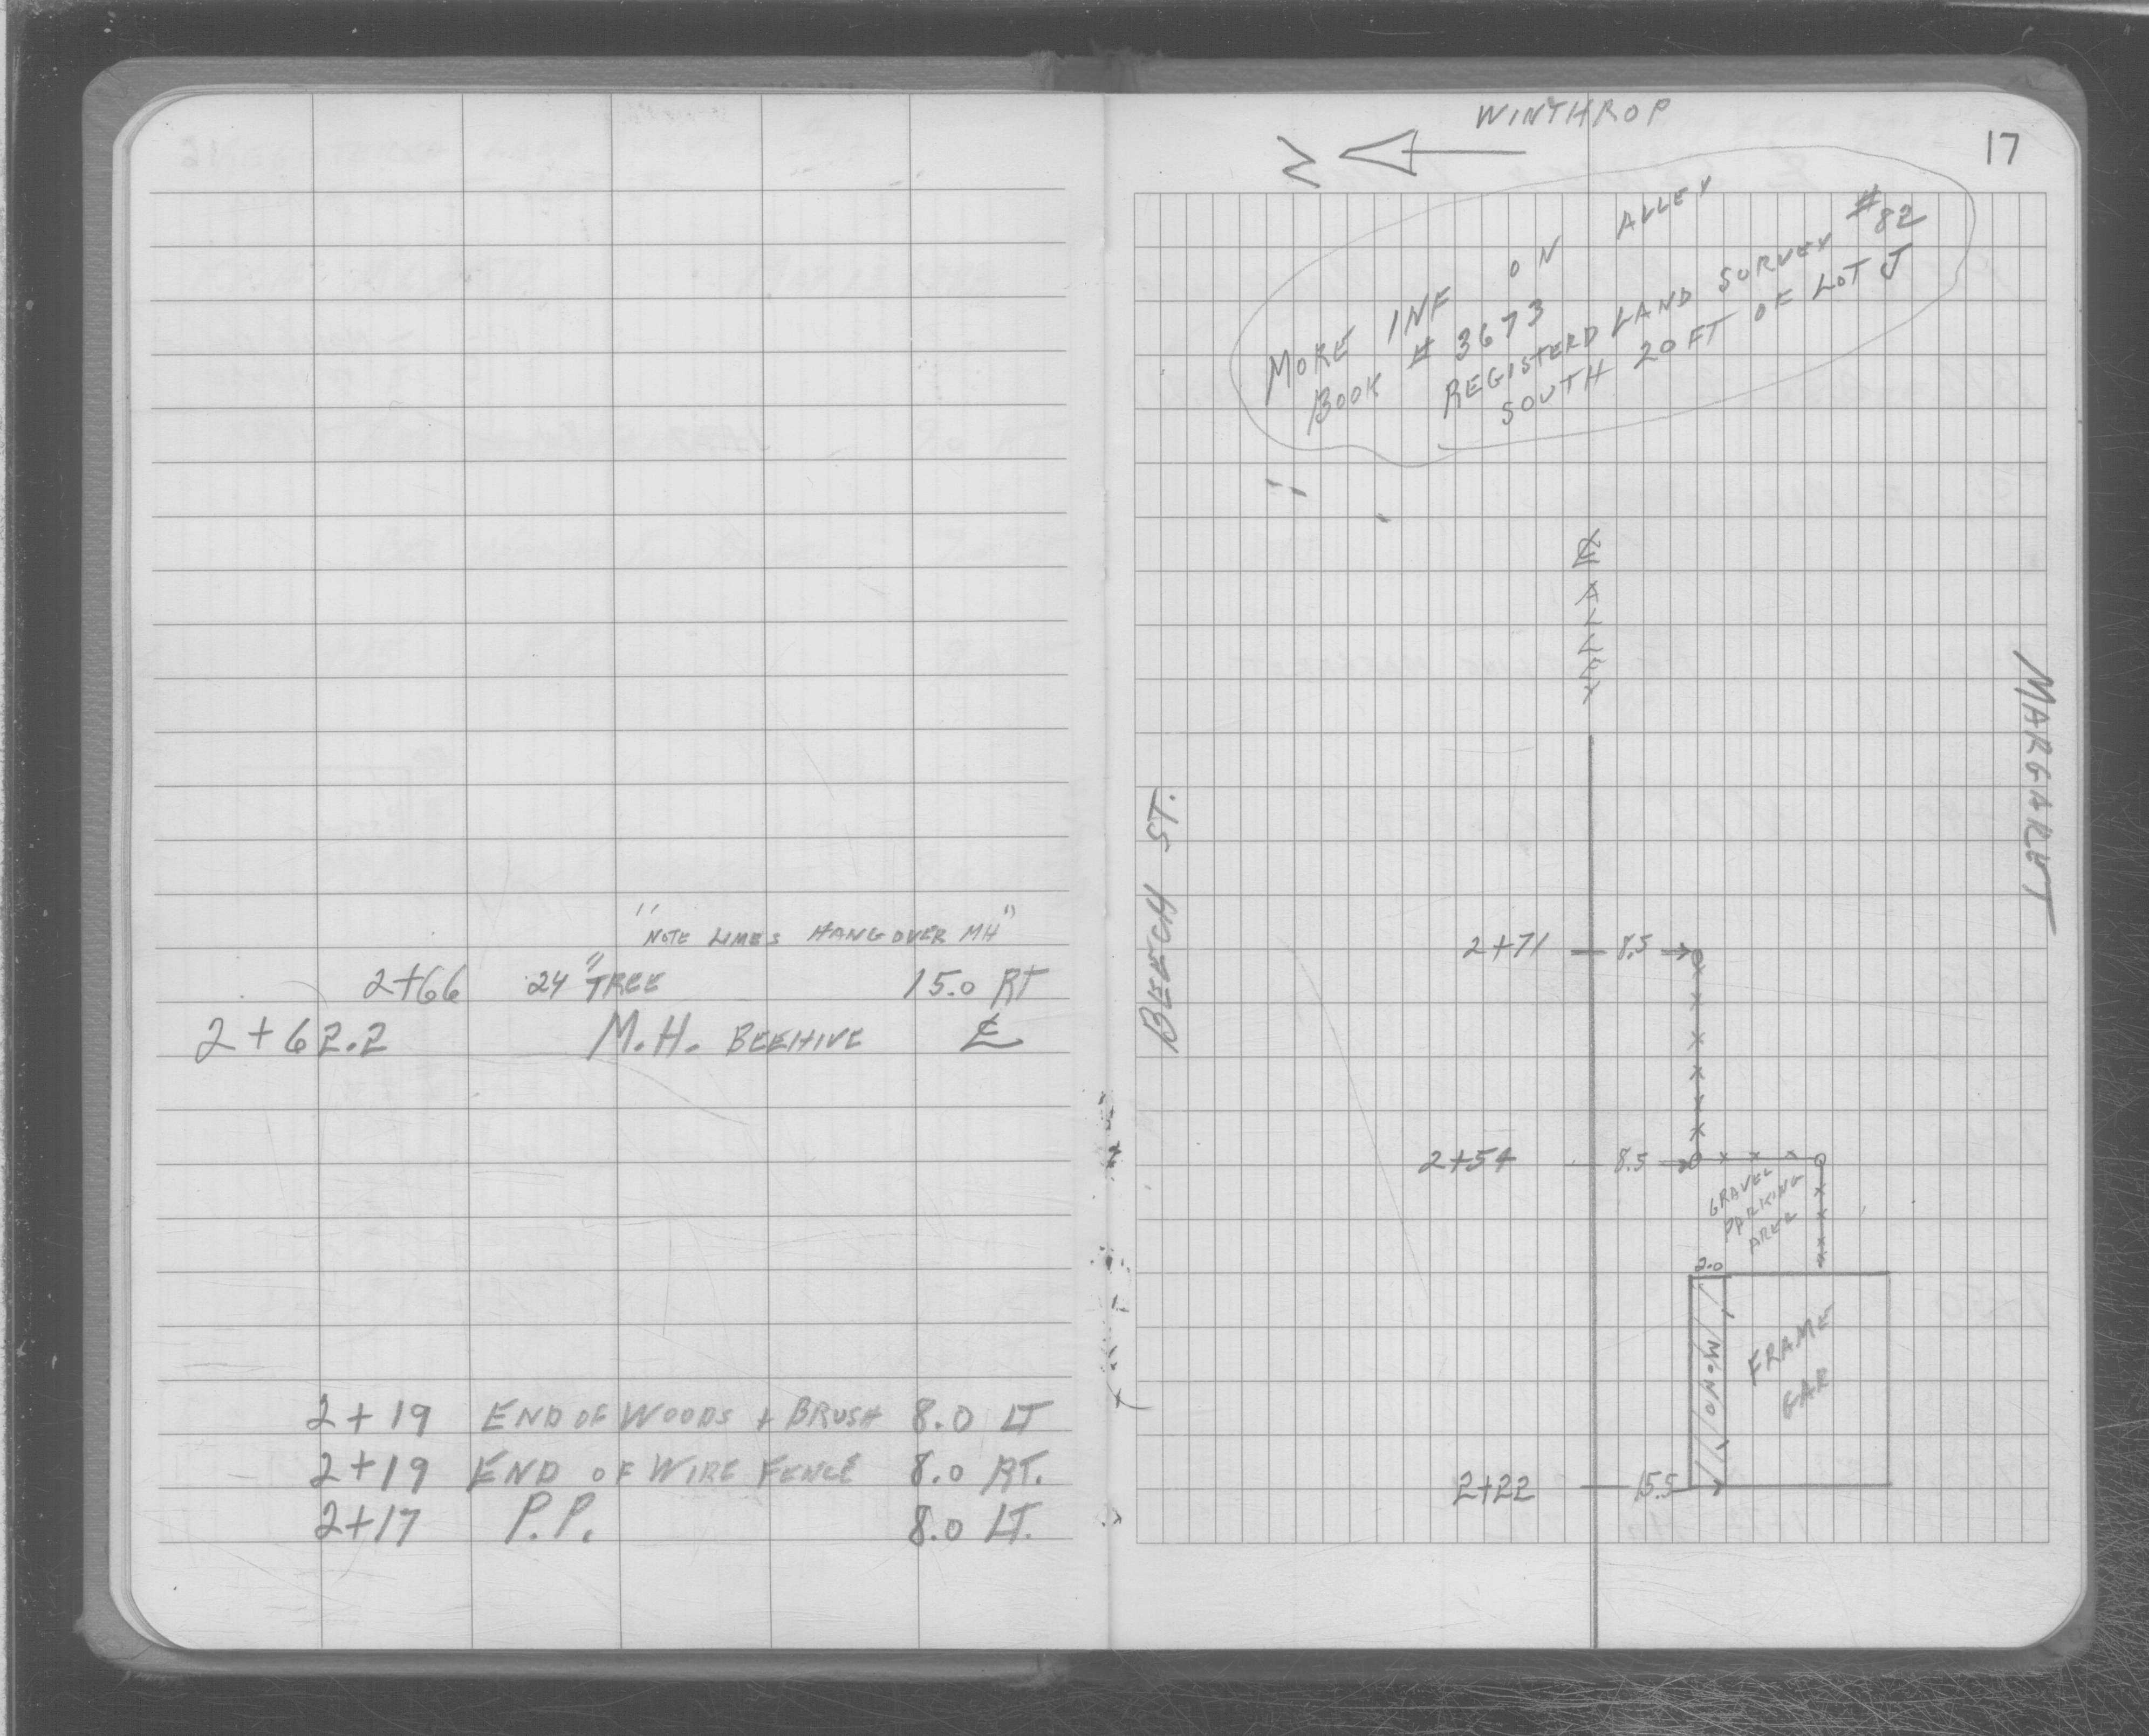 "NOTE LIMES HANGOVER MH"
2+66 24" TREE 15.0 RT
2+62.2 M.H. BEEHIVE ℄
2+19 END OF WOODS + BRUSH 8.0 LT
2+19 END OF WIRE FENCE 8.0 RT.
2+17 P.P. 8.0 LT.
WINTHROP
N
17
MORE INF ON ALLEY
BOOK # 3673
REGISTERD LAND SURVEY #82
SOUTH 20 FT OF LOT J
℄ ALLEY
MARGARET
BEECH ST.
2+71 8.5
2+54 8.5
GRAVEL
PARKING
AREA
2.0
MONO
FRAME
GAR
2+22 15.5